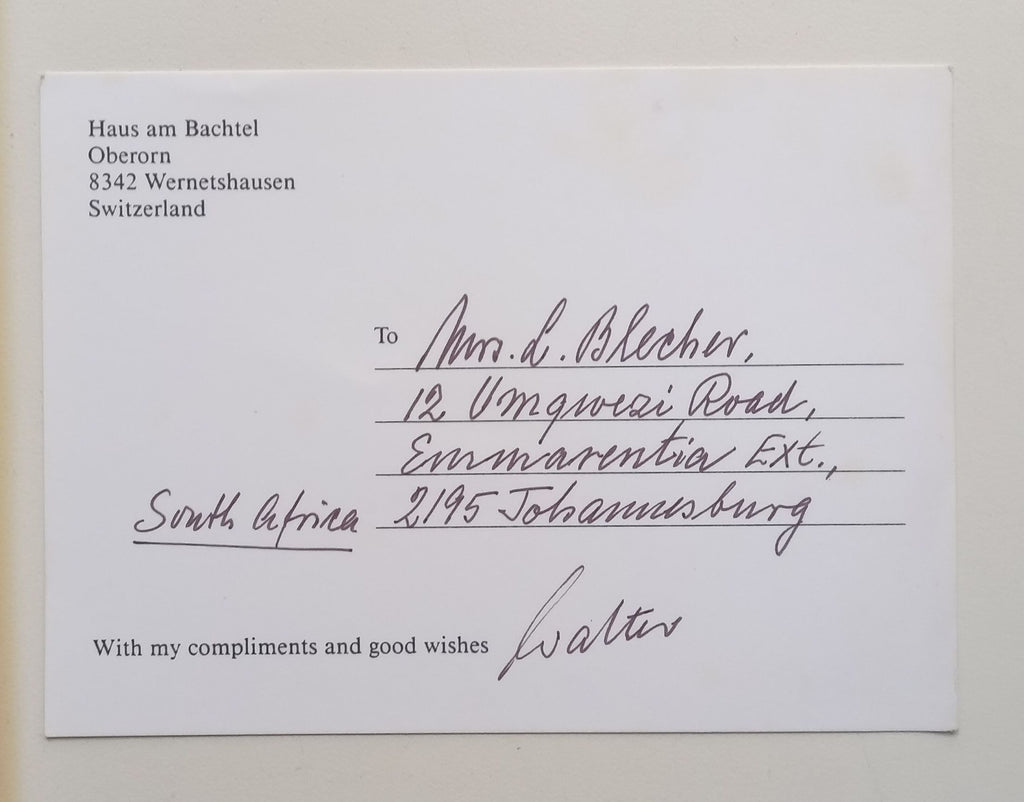 Haus am Bachtel
Oberorn
8342 Wernetshausen
Switzerland
To Mrs. L. Blecher,
12 Umgwezi Road,
Emmarentia Ext.,
South Africa 2195 Johannesburg
With my compliments and good wishes Walter